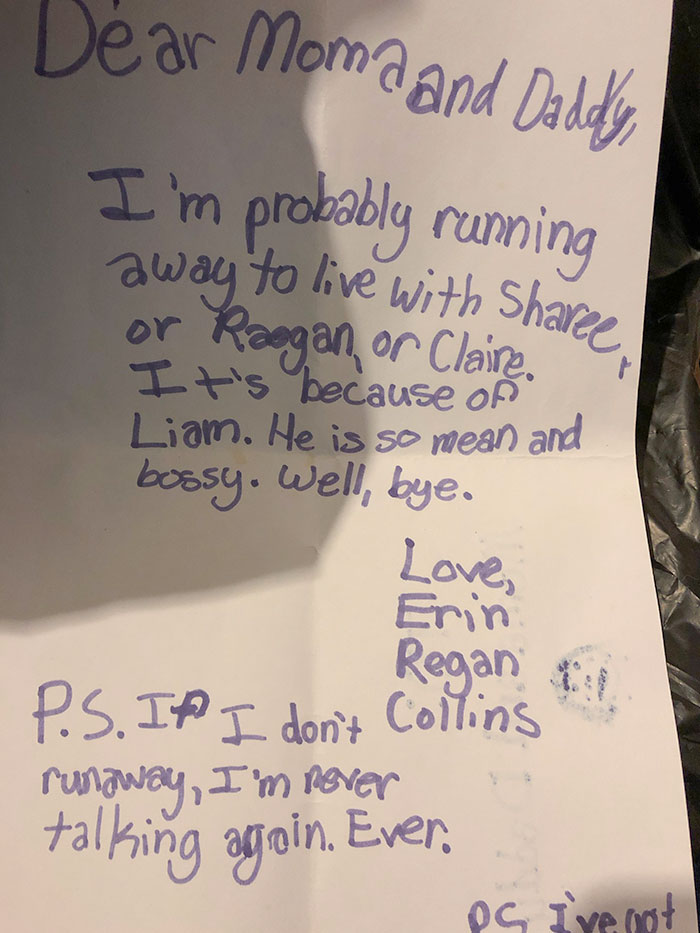 Dear Moma and Daddy,
I'm probably running
away to live with Sharee,
or Raegan, or Claire.
It's because of
Liam. He is so mean and
bossy. Well, bye.
Love,
Erin
Regan
Collins
P.S. If I don't
runaway, I'm never
talking again. Ever.
PS I've got